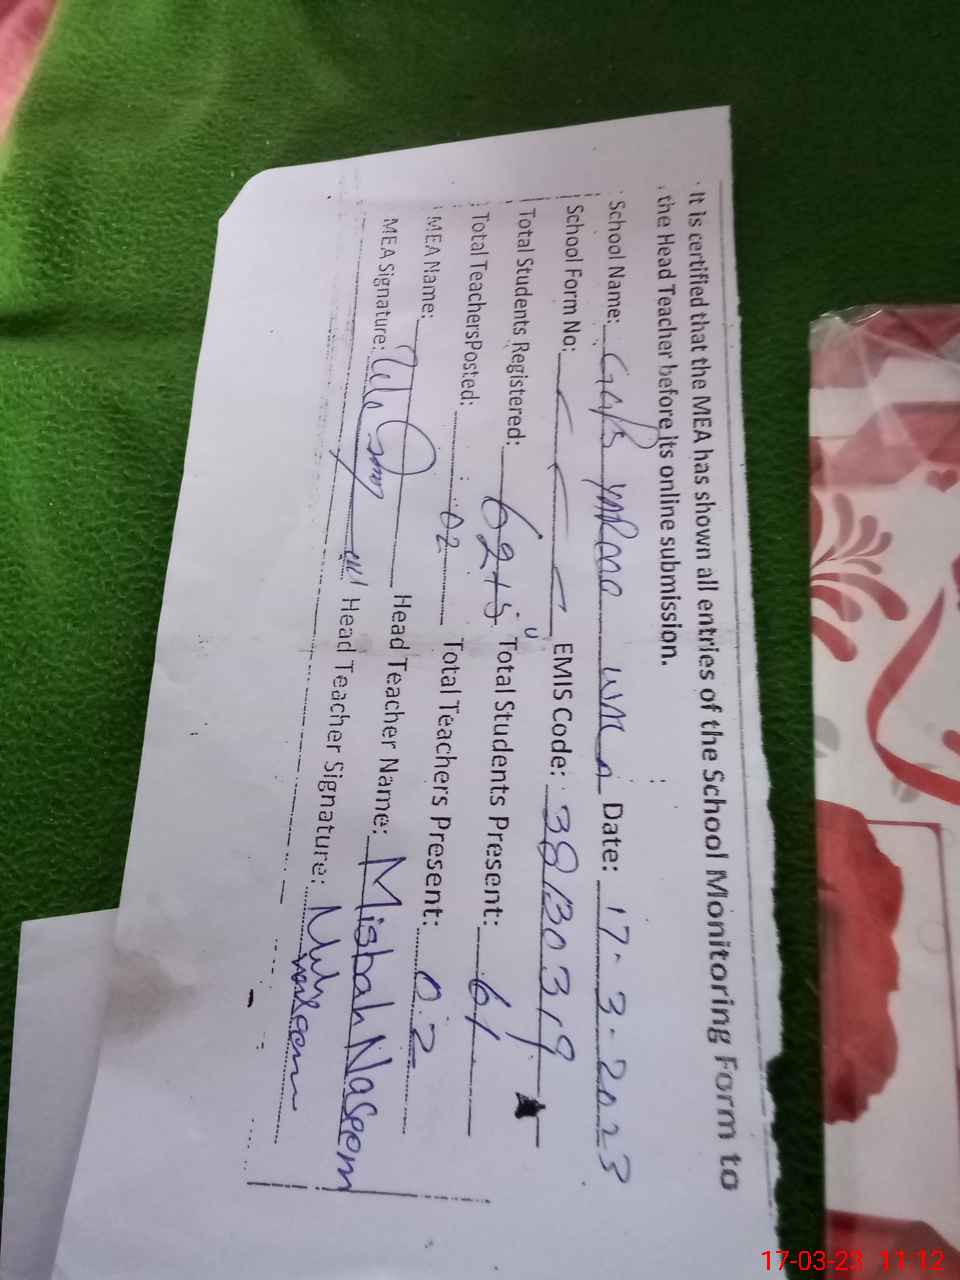 It is certified that the MEA has shown all entries of the School Monitoring Form to
the Head Teacher before its online submission.
School Name: Date: 17-3-2023
School Form No: EMIS Code: 38130319
Total Students Registered: 62+5 Total Students Present: 61
Total TeachersPosted: 02 Total Teachers Present: 02
MEA Name: Head Teacher Name: Misbah Naseem
MEA Signature: Head Teacher Signature: Naseem
17-03-23 11:12